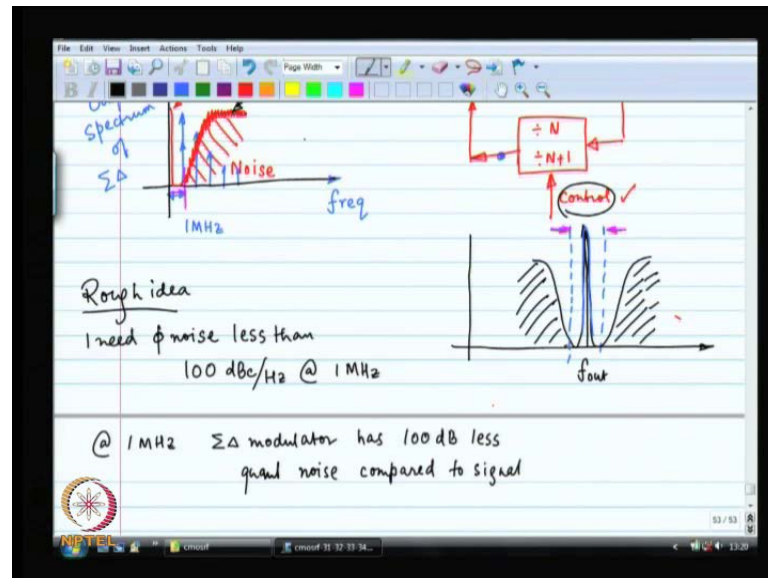 File Edit View Insert Actions Tools Help
Page Width
B I
spectrum
of
ΣΔ
Noise
freq
1MHz
÷ N
÷ N+1
Control ✓
Rough idea
I need ϕ noise less than
100 dBc/Hz @ 1 MHz
fout
@ 1 MHz ΣΔ modulator has 100 dB less
quant noise compared to signal
53 / 53
NPTEL
cmosrf
cmosrf-31-32-33-34...
13:20